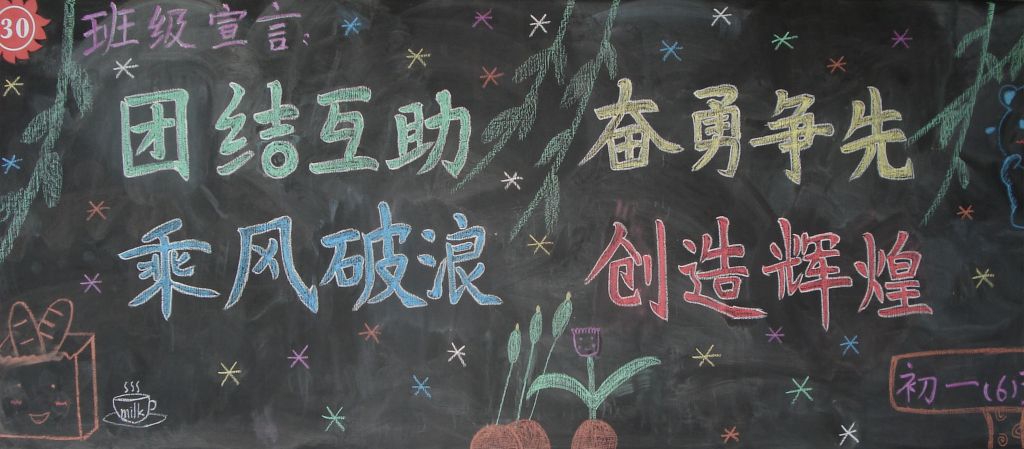 30
班级宣言:
团结互助 奋勇争先
乘风破浪 创造辉煌
milk
初一(6)